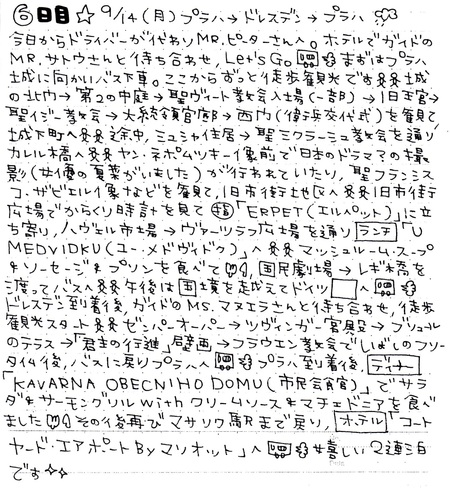 ⑥日目☆9/14(月)プラハ→ドレスデン→プラハ
今日からドライバーが代わりMR.ピーターさんへ。ホテルでガイドの
MR.サトウさんと待ち合わせ,Let's Go まずはプラハ
城に向かいバス下車。ここからずっと徒歩観光です 城
の北門→第2の中庭→聖ヴィート教会入場(一部)→旧王宮→
聖イジー教会→大統領官邸→西門(衛兵交代式)を観て
城下町へ 途中,ミュシャ住居→聖ミクラーシュ教会を通り
カレル橋へ ヤン・ネポムツキー像前で日本のドラマ?の撮
影(女優の夏菜がいました)が行われていたり,聖フランシス
コ・ザビエル像などを観て,旧市街土地区へ 旧市街
広場でからくり時計を見て「ERPET(エルペット)」に立
ち寄り,ハヴェル市場→ヴァーツラフ広場を通り ランチ「U
MEDVIDKU(ユー・メドヴィドゥ)」へ マッシュルーム・スープ
&ソーセージ&プリンを食べて 国民劇場→レギ橋を
渡ってバスへ 午後は国境を越えてドイツ へ
ドレスデン到着後,ガイドのMs.マヌエラさんと待ち合わせ,徒歩
観光スタート ゼンパーオーパー→ツヴィンガー宮殿→ブリュール
のテラス→「君主の行進」壁画→フラウエン教会でしばしのフリー
タイム後,バスに戻りプラハへ プラハ到着後,ディナー
「KAVARNA OBECNIHO DOMU(市民会館)」でサラ
ダ&サーモングリル with クリームソース&マチェドニアを食べ
ました その後再びマサリク駅まで戻り,ホテル「コート
ヤード・エアポート By マリオット」へ 嬉しい2連泊
です